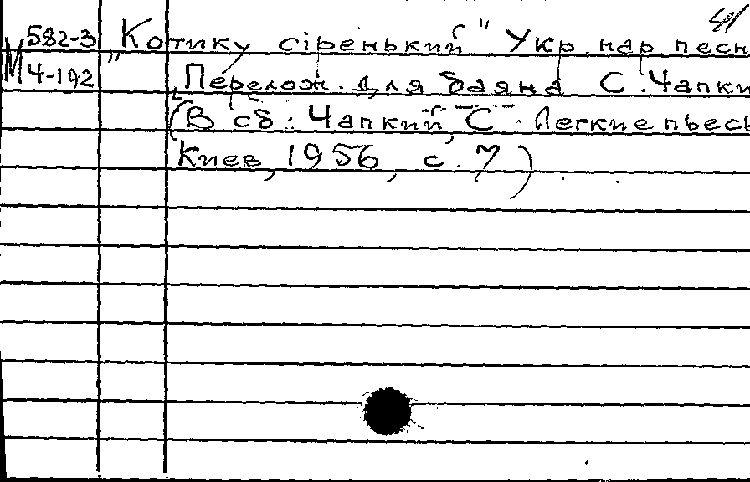 582-3 „Котику сіренький" Укр. нар. песн
М 4-192 Перелож. для баяна С. Чапки
(В сб.: Чапкий, С. Легкие пьес
Киев, 1956, с. 7)